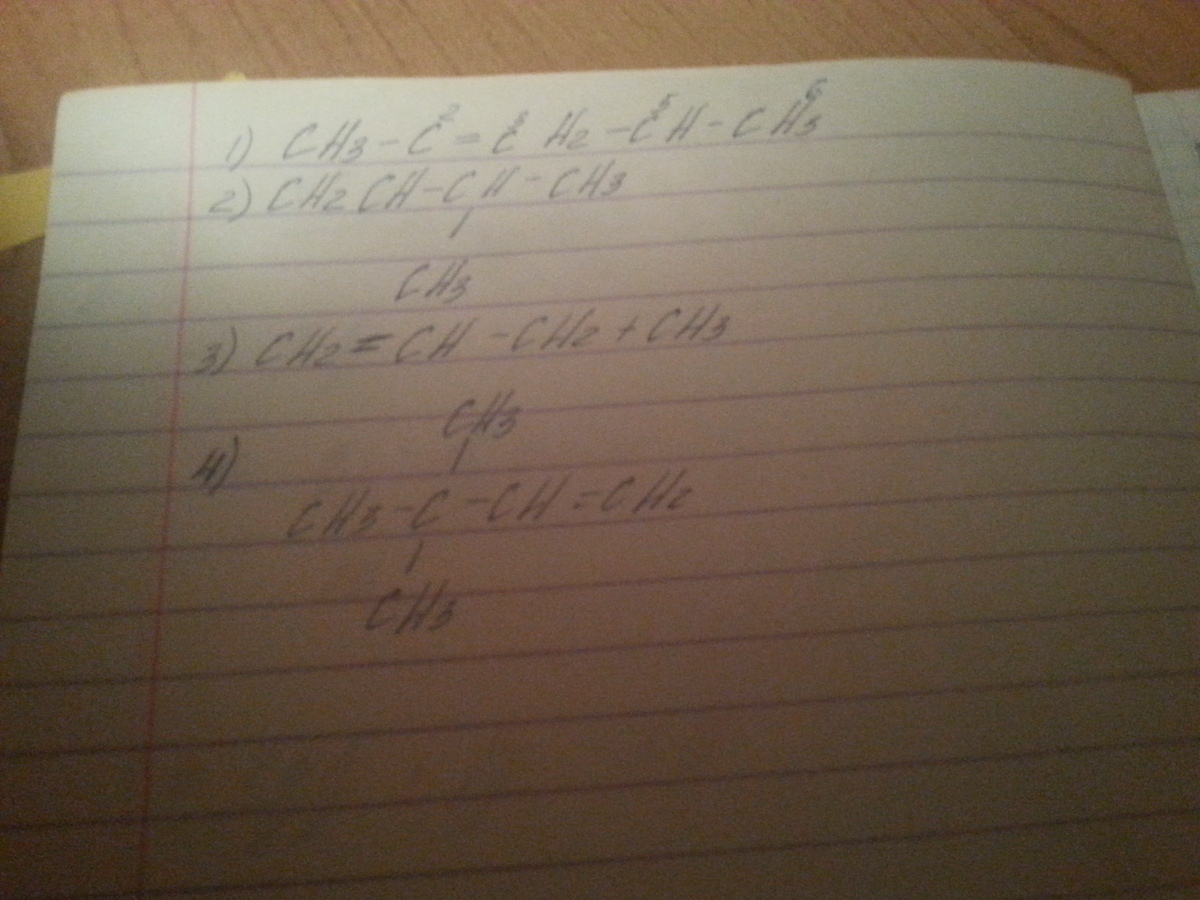 1) CH3 - C² = C³ H2 - C⁵H - CH3⁶
2) CH2 CH - CH - CH3
|
CH3
3) CH2 = CH - CH2 + CH3
CH3
|
4)
CH3 - C - CH = CH2
|
CH3